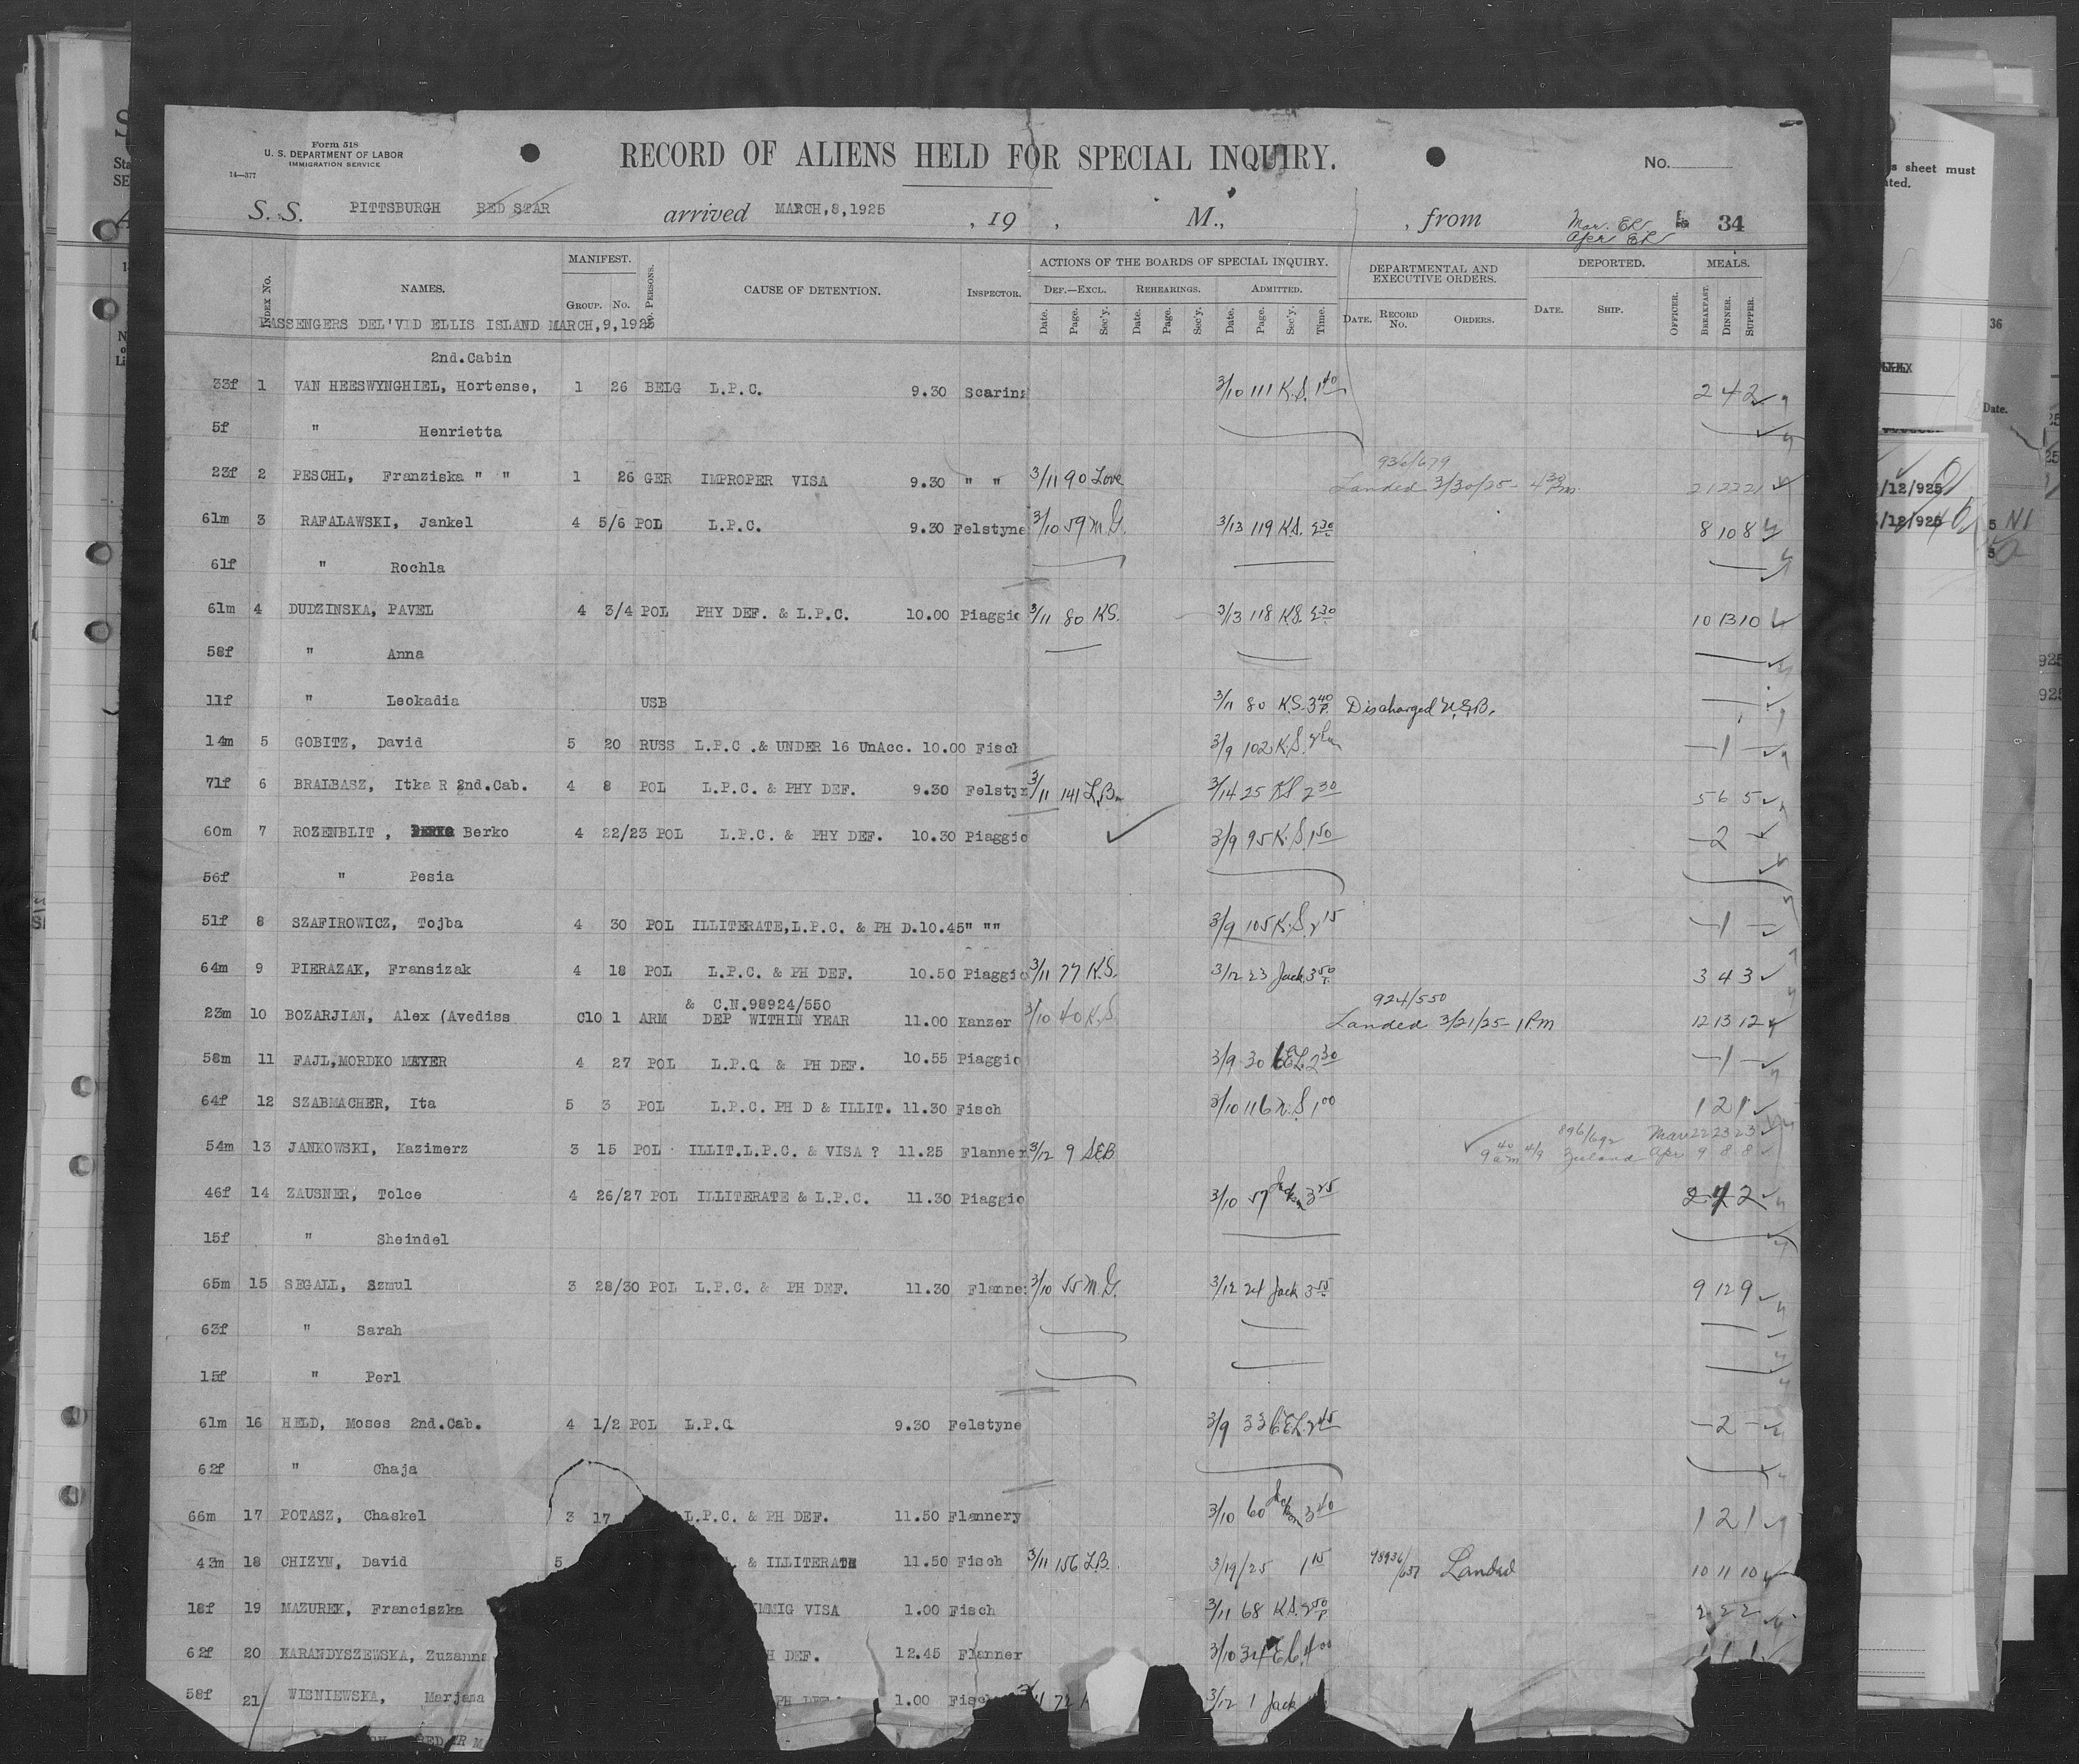 Form 518
U. S. DEPARTMENT OF LABOR
IMMIGRATION SERVICE
14—377
RECORD OF ALIENS HELD FOR SPECIAL INQUIRY.
No.
S. S. PITTSBURGH RED STAR arrived MARCH,8,1925 , 19 , M., , from
Mar. Apr 34
INDEX No. NAMES. MANIFEST. GROUP. No. No. PERSONS. CAUSE OF DETENTION. INSPECTOR.
ACTIONS OF THE BOARDS OF SPECIAL INQUIRY. DEF.—EXCL. REHEARINGS. ADMITTED.
Date. Page. Sec'y. Date. Page. Sec'y. Date. Page. Sec'y. Time.
DEPARTMENTAL AND EXECUTIVE ORDERS. DATE. RECORD No. ORDERS.
DEPORTED. DATE. SHIP. OFFICER.
MEALS. BREAKFAST. DINNER. SUPPER.
PASSENGERS DEL'VED ELLIS ISLAND MARCH,9,1925
2nd.Cabin
33f 1 VAN HEESWYNGHIEL, Hortense, 1 26 BELG L.P.C. 9.30 Scarins 3/10 111 K.S. 1 40 2 4 2
5f " Henrietta
936/679
23f 2 PESCHL, Franziska " " 1 26 GER IMPROPER VISA 9.30 " " 3/11 90 Love Landed 3/30/25- 4 30 Pm 21 22 21
61m 3 RAFALAWSKI, Jankel 4 5/6 POL L.P.C. 9.30 Felstyne 3/10 59 M.G. 3/13 119 K.S. 2 30 8 10 8
61f " Rochla
61m 4 DUDZINSKA, PAVEL 4 3/4 POL PHY DEF. & L.P.C. 10.00 Piaggio 3/11 80 KS. 3/13 118 K.S. 2 30 10 13 10
58f " Anna
11f " Leokadia USB 3/11 80 K.S. 3 40 P. Discharged U.S.B.
14m 5 GOBITZ, David 5 20 RUSS L.P.C .& UNDER 16 UnAcc. 10.00 Fisch 3/9 102 K.S. — 1 —
71f 6 BRALBASZ, Itka R 2nd.Cab. 4 8 POL L.P.C. & PHY DEF. 9.30 Felstyn 3/11 141 L.B. 3/14 25 KS 2 30 5 6 5
60m 7 ROZENBLIT , Berko 4 22/23 POL L.P.C. & PHY DEF. 10.30 Piaggio 3/9 95 K.S. 1 50 — 2 —
56f " Pesia
51f 8 SZAFIROWICZ, Tojba 4 30 POL ILLITERATE,L.P.C. & PH D.10.45" "" 3/9 105 K.S. 2 15 — 1 —
64m 9 PIERAZAK, Fransizak 4 18 POL L.P.C. & PH DEF. 10.50 Piaggio 3/11 77 K.S. 3/12 23 Jack 3 50 3 4 3
& C.N.98924/550 924/550
23m 10 BOZARJIAN, Alex (Avediss C10 1 ARM DEP WITHIN YEAR 11.00 Kanzer 3/10 40 K.S. Landed 3/21/25- 1 P.m 12 13 12
58m 11 FAJL,MORDKO MEYER 4 27 POL L.P.C & PH DEF. 10.55 Piaggio 3/9 30 2 30 — 1 —
64f 12 SZABMACHER, Ita 5 3 POL L.P.C. PH D & ILLIT. 11.30 Fisch 3/10 116 K.S. 1 00 1 2 1
896/692 Mar 22 23 23
54m 13 JANKOWSKI, Kazimerz 3 15 POL ILLIT.L.P.C. & VISA ? 11.25 Flanner 3/12 9 SEB 9 40 am 4/9 Zeeland Apr 9 8 8
46f 14 ZAUSNER, Tolce 4 26/27 POL ILLITERATE & L.P.C. 11.30 Piaggio 3/10 57 Jackson 3 25 2 4 2
15f " Sheindel
65m 15 SEGALL, Szmul 3 28/30 POL L.P.C. & PH DEF. 11.30 Flanne 3/10 55 M.G. 3/12 24 Jack 3 55 9 12 9
63f " Sarah
15f " Perl
61m 16 HELD, Moses 2nd.Cab. 4 1/2 POL L.P.C 9.30 Felstyne 3/9 33 2 45 — 2 —
62f " Chaja
66m 17 POTASZ, Chaskel 3 17 L.P.C. & PH DEF. 11.50 Flannery 3/10 60 Jackson 3 40 1 2 1
43m 18 CHIZYN, David 5 & ILLITERATE 11.50 Fisch 3/11 156 L.B. 3/19/25 1 15 98936/637 Landed 10 11 10
18f 19 MAZUREK, Franciszka IMMIG VISA 1.00 Fisch 3/11 68 K.S. 2 50 P 2 2 2
62f 20 KARANDYSZEWSKA, Zuzanna H DEF. 12.45 Flanner 3/10 34 4 00 1 1 1
58f 21 WISNIEWSKA, Marjana PH DEF. 1.00 Fisc 3/11 72 3/12 1 Jack
s sheet must
ated.
36
Date.
/12/925
/12/925
925
925